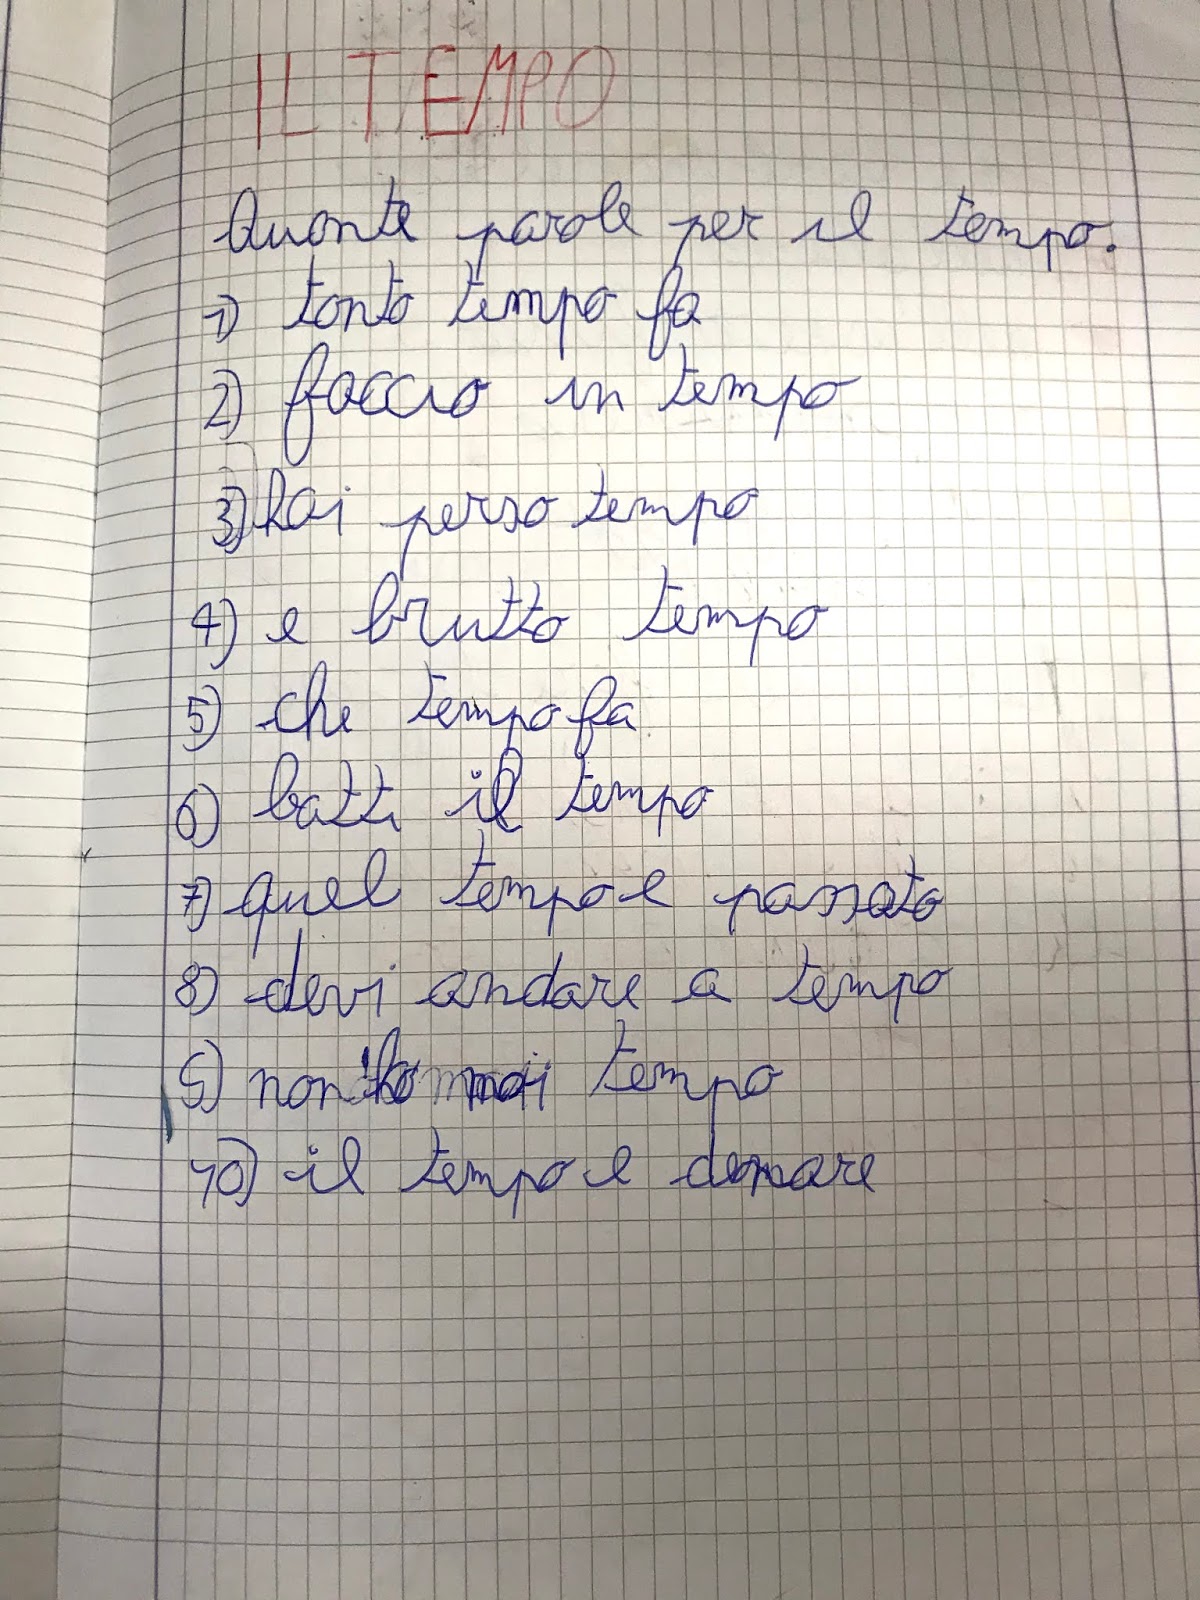 IL TEMPO
Quante parole per il tempo.
1) tanto tempo fa
2) faccio in tempo
3) hai perso tempo
4) e brutto tempo
5) che tempo fa
6) batti il tempo
7) quel tempo e passato
8) devi andare a tempo
9) non ho mai tempo
10) il tempo e denare